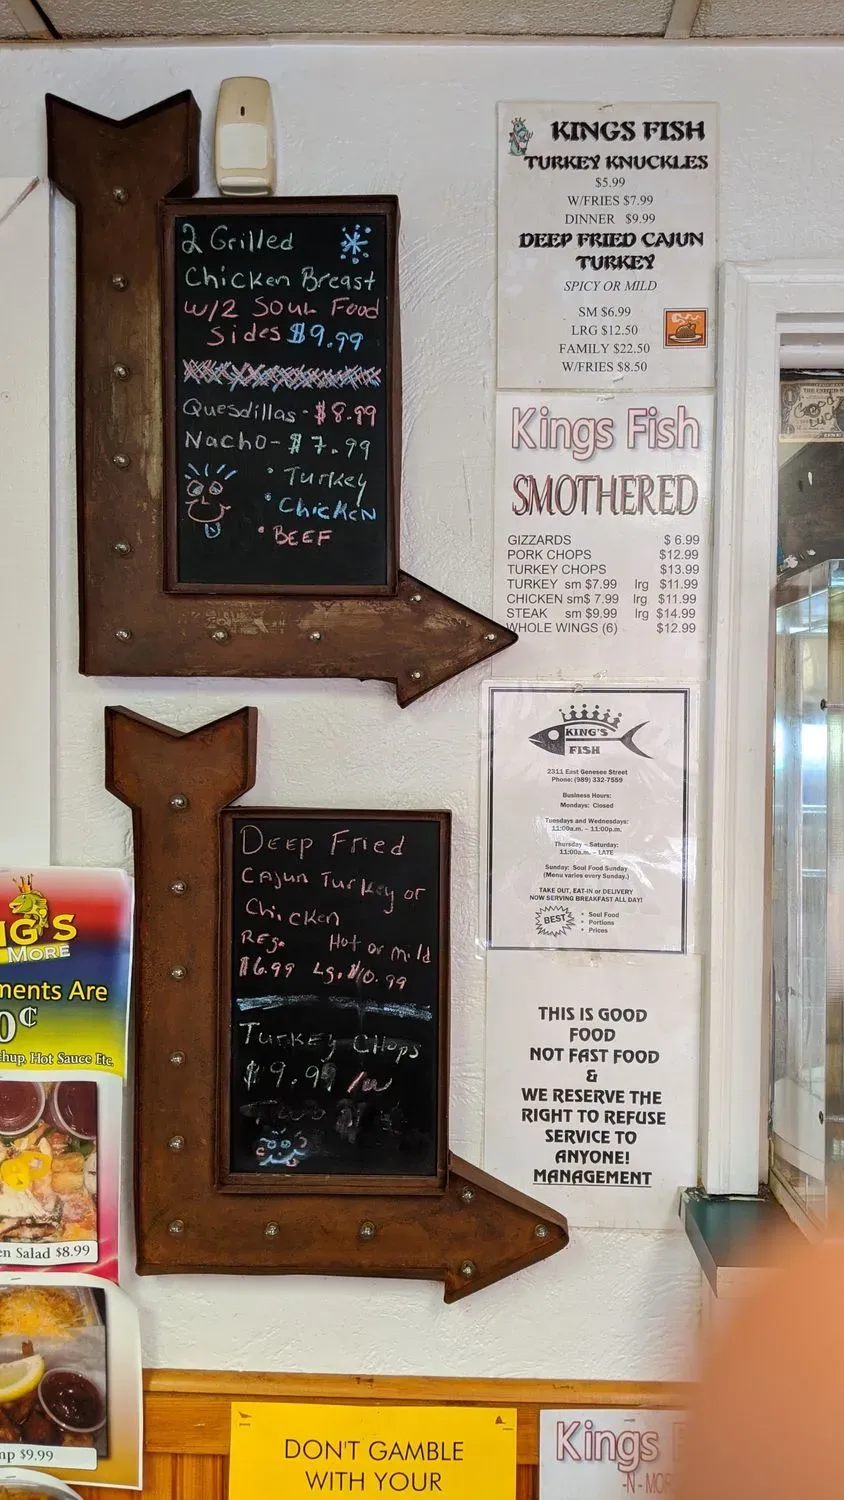 2 Grilled
Chicken Breast
w/2 Soul Food
Sides $9.99
Quesdillas - $8.99
Nacho - $7.99
• Turkey
• Chicken
• BEEF
KINGS FISH
TURKEY KNUCKLES
$5.99
W/FRIES $7.99
DINNER $9.99
DEEP FRIED CAJUN
TURKEY
SPICY OR MILD
SM $6.99
LRG $12.50
FAMILY $22.50
W/FRIES $8.50
Kings Fish
SMOTHERED
GIZZARDS $ 6.99
PORK CHOPS $12.99
TURKEY CHOPS $13.99
TURKEY sm $7.99 lrg $11.99
CHICKEN sm$ 7.99 lrg $11.99
STEAK sm $9.99 lrg $14.99
WHOLE WINGS (6) $12.99
KING'S
FISH
2311 East Genesee Street
Phone: (989) 332-7559
Business Hours:
Mondays: Closed
Tuesdays and Wednesdays:
11:00a.m. – 11:00p.m.
Thursday – Saturday:
11:00a.m. – LATE
Sunday: Soul Food Sunday
(Menu varies every Sunday.)
TAKE OUT, EAT-IN or DELIVERY
NOW SERVING BREAKFAST ALL DAY!
BEST
• Soul Food
• Portions
• Prices
Deep Fried
Cajun Turkey or
Chicken
REg. Hot or mild
$6.99 Lg. $10.99
Turkey Chops
$9.99 /w
THIS IS GOOD
FOOD
NOT FAST FOOD
&
WE RESERVE THE
RIGHT TO REFUSE
SERVICE TO
ANYONE!
MANAGEMENT
NG'S
MORE
ments Are
0¢
chup, Hot Sauce Etc.
en Salad $8.99
mp $9.99
DON'T GAMBLE
WITH YOUR
Kings
-N-MOR